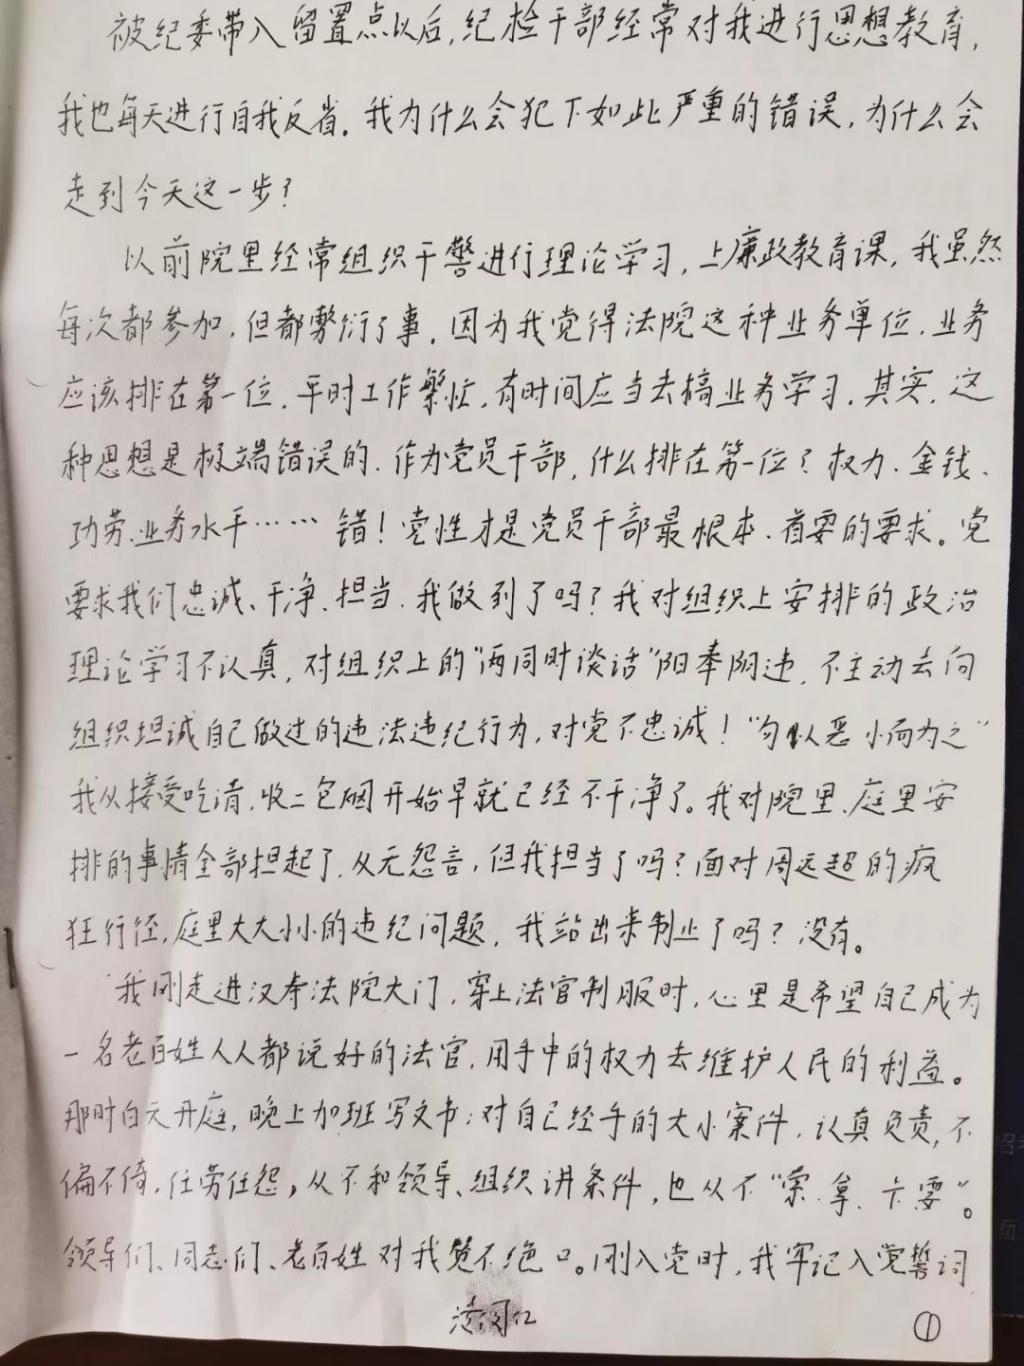 被纪委带入留置点以后,纪检干部经常对我进行思想教育,
我也每天进行自我反省。我为什么会犯下如此严重的错误,为什么会
走到今天这一步?
以前院里经常组织干警进行理论学习,上廉政教育课,我虽然
每次都参加,但都敷衍了事。因为我觉得法院这种业务单位,业务
应该排在第一位,平时工作繁忙,有时间应当去搞业务学习。其实,这
种思想是极端错误的。作为党员干部,什么排在第一位?权力、金钱、
功劳、业务水平……错!党性才是党员干部最根本、首要的要求。党
要求我们忠诚、干净、担当,我做到了吗?我对组织上安排的政治
理论学习不认真,对组织上的“两同时谈话”阳奉阴违,不主动去向
组织坦诚自己做过的违法违纪行为,对党不忠诚!“勿以恶小而为之”
我从接受吃请,收二包烟开始早就已经不干净了。我对院里、庭里安
排的事情全部担起了,从无怨言,但我担当了吗?面对周远超的疯
狂行径,庭里大大小小的违纪问题,我站出来制止了吗?没有。
我刚走进汉寿法院大门,穿上法官制服时,心里是希望自己成为
一名老百姓人人都说好的法官,用手中的权力去维护人民的利益。
那时白天开庭,晚上加班写文书;对自己经手的大小案件,认真负责,不
偏不倚,任劳任怨,从不和领导、组织讲条件,也从不“索、拿、卡、要”。
领导们、同志们、老百姓对我赞不绝口。刚入党时,我牢记入党誓词
①